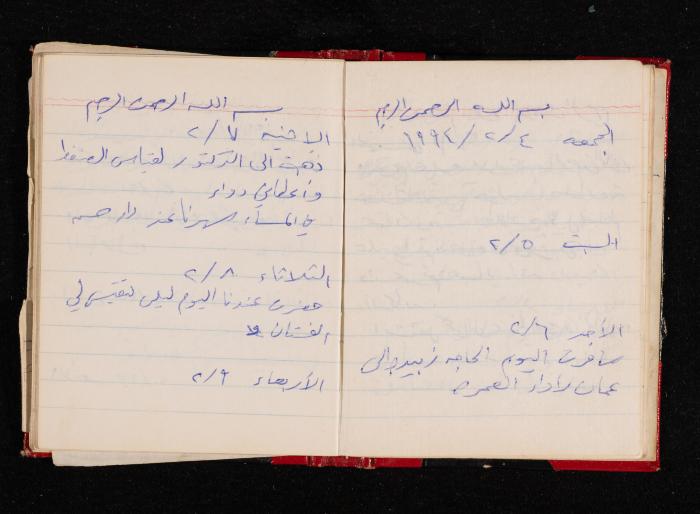 بسم الله الرحمن الرحيم
الجمعه ٢/٤/١٩٩٤
السبت ٢/٥
الأحد ٢/٦
سافرت اليوم الحاجه زبيده الى
عمان لاداء العمره
بسم الله الرحمن الرحيم
الاثنين ٢/٧
ذهبت الى الدكتور لقياس الضغط
وأعطاني دواء
في المساء سهرنا عند دار حسن
الثلاثاء ٢/٨
حضرت عندنا اليوم ليلى لتقيس لي
الفستان
الأربعاء ٢/٩